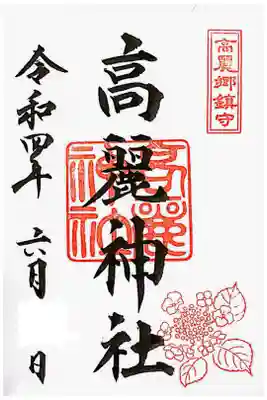 高麗郷鎮守
高麗神社
高麗
神社
令和四年 六月 日